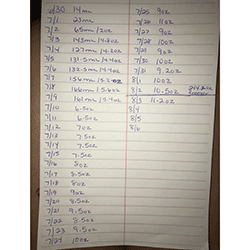 6/30 14mL
7/1 23mL
7/2 65mL/2oz
7/3 143mL/4.8oz
7/4 127mL/4.2oz
7/5 131.5mL/4.4oz
7/6 132.5mL/4.4oz
7/7 156mL/5.2oz
7/8 168mL/5.6oz
7/9 161mL/5.4oz
7/10 6.5oz
7/11 7.5oz
7/12 7oz
7/13 7.5oz
7/14 7.5oz
7/15 7.5oz
7/16 8oz
7/17 8.5oz
7/18 8oz
7/19 9oz
7/20 8.5oz
7/21 9.5oz
7/22 8.5oz
7/23 9.5oz
7/24 10oz
7/25 9oz
7/26 11oz
7/27 9oz
7/28 10oz
7/29 9oz
7/30 10oz
7/31 9.2oz
8/1 10oz
8/2 10.5oz
8/3 11.2oz
8/4
8/5
8/6